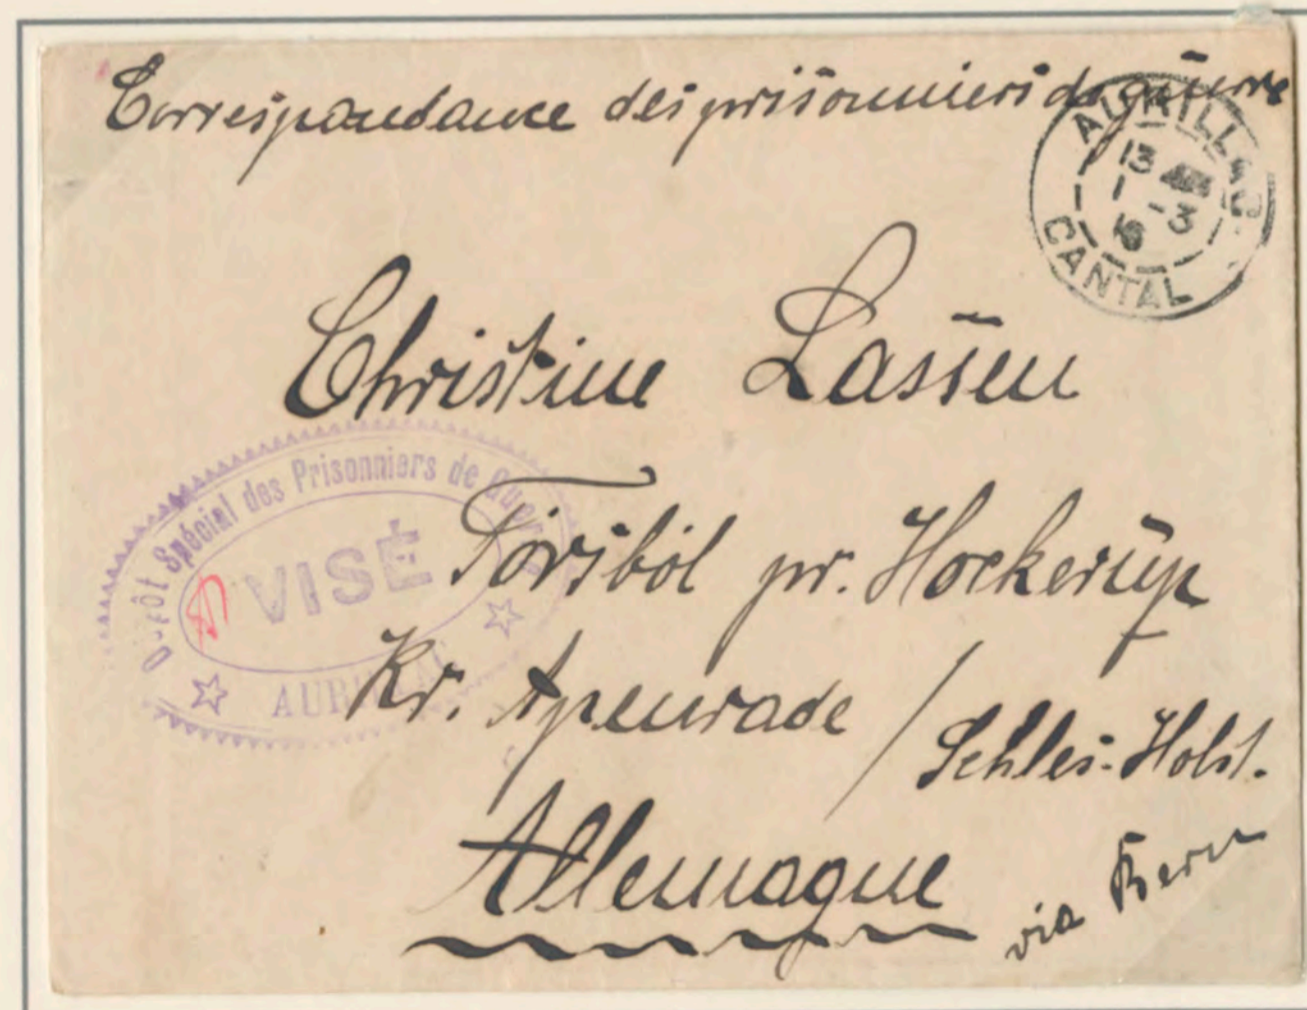 Correspondance des prisonniers de guerre
AURILLAC
13
1 -3
16
CANTAL
Christine Lassen
Dépôt Spécial des Prisonniers de Guerre
VISÉ
AURILLAC
Törsböl pr. Hockerup
Kr. Apenrade / Schles.-Holst.
Allemagne
via Bern